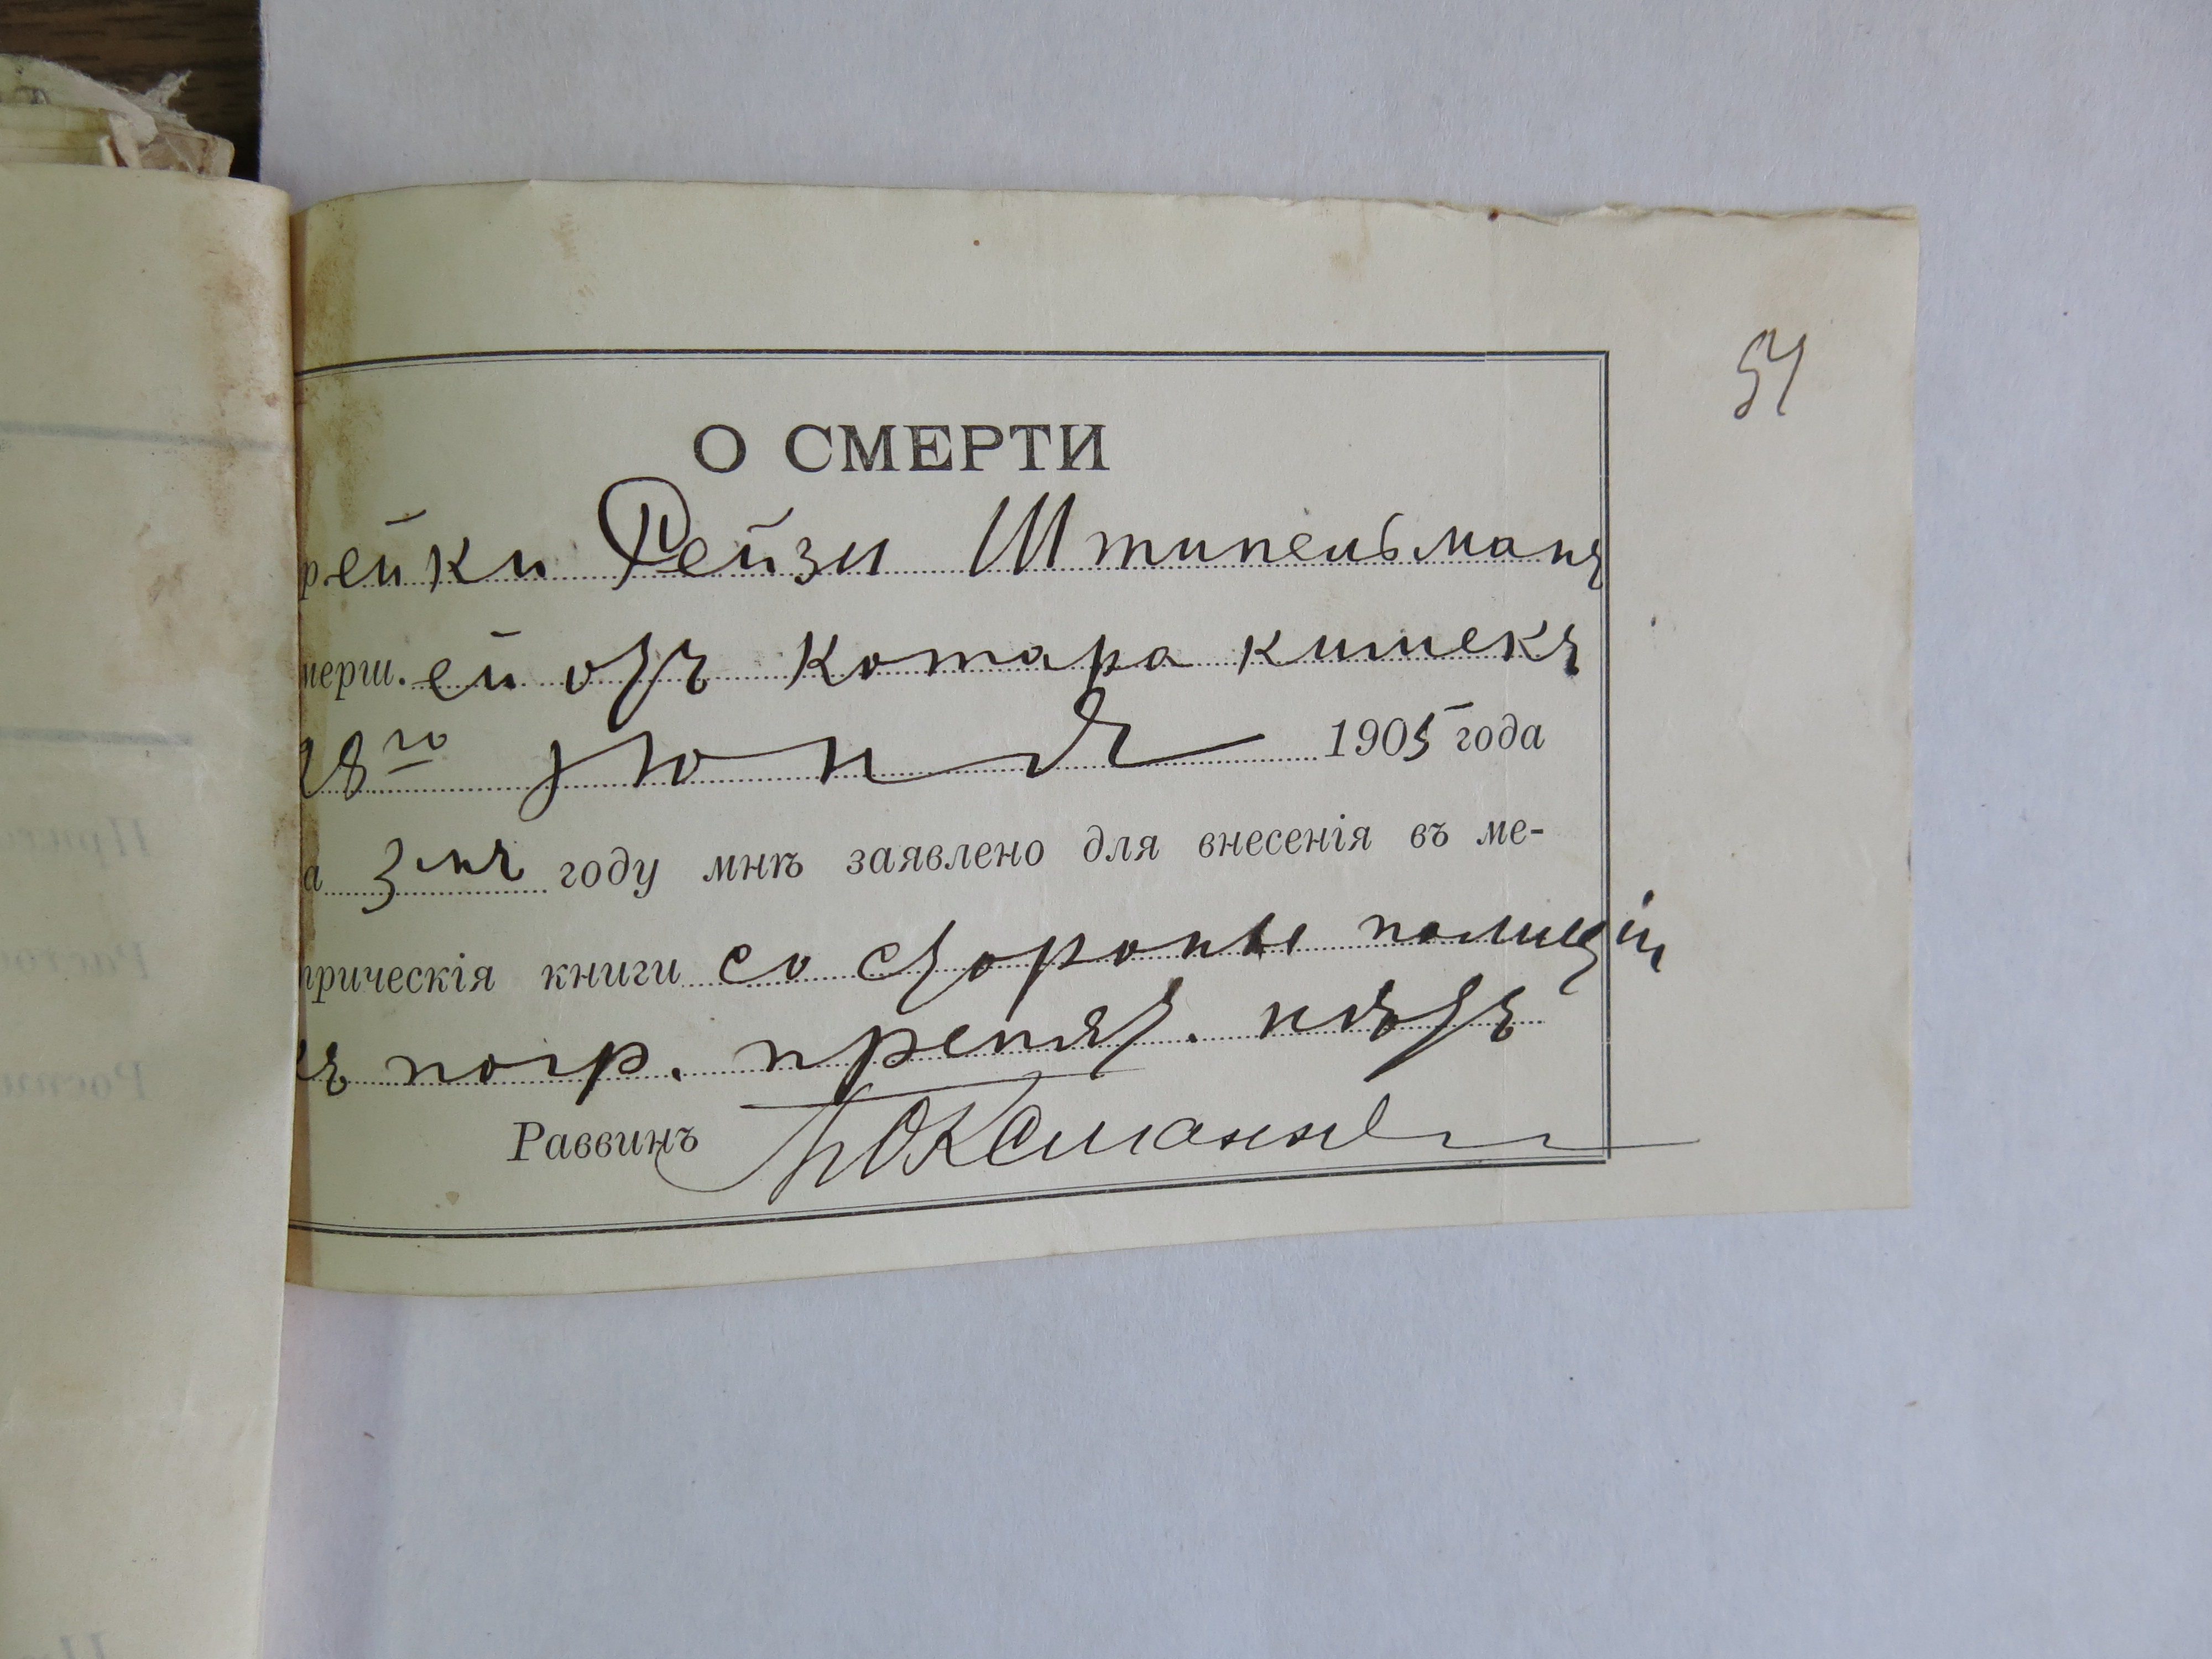 54
О СМЕРТИ
рейки Рейзи Штипельманъ
мерш.ей отъ катара кишекъ
28го Іюня 1905 года
а 3мъ году мнѣ заявлено для внесенія въ ме-
трическія книги со стороны полиціи
къ погр. препят. нѣтъ
Раввинъ